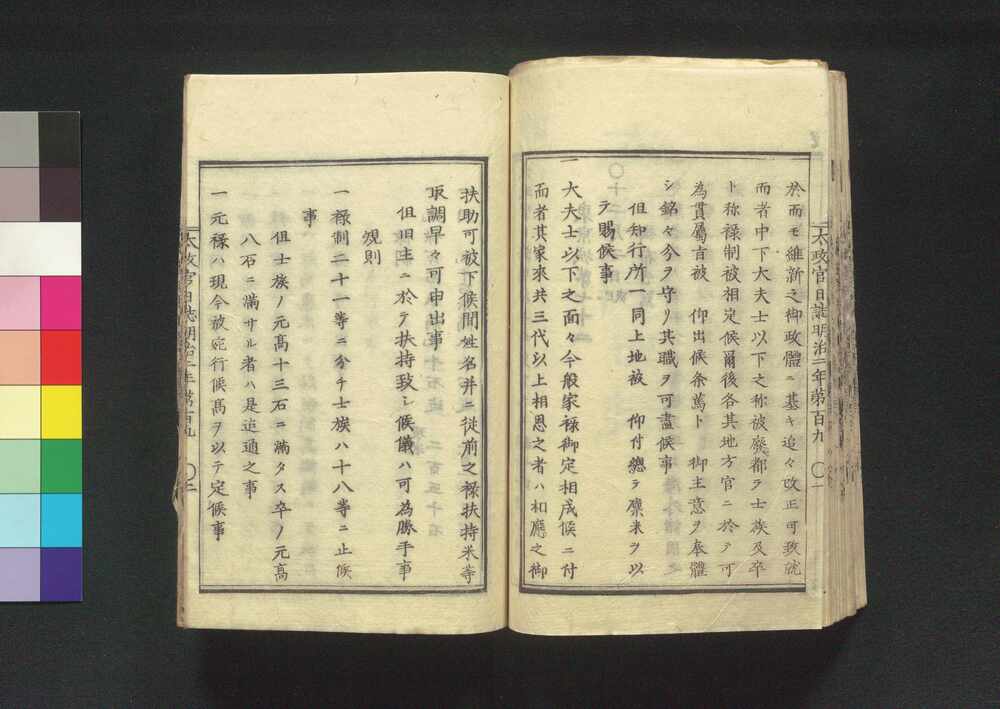 於而モ維新之御政體ニ基キ追々改正可致就
而者中下大夫士以下之称被廢都ヲ士族及卒
ト称禄制被相定候爾後各其地方官ニ於テ可
為貫屬旨被　仰出候条萬ト　御主意ヲ奉體
シ銘々今ヲ守リ其職ヲ可盡候事
但知行所一同上地被　仰付總ヲ廩米ヲ以
テ賜候事
一大夫士以下之面々今般家禄御定相成候ニ付
而者其家來共三代以上相恩之者ハ相應之御
太政官日誌明治二年第百九　〇二
扶助可被下候間姓名并ニ従前之禄扶持米等
取調早々可申出事
但旧主ニ於テ扶持致シ候儀ハ可為勝手事
規則
一禄制二十一等ニ分チ士族ハ十八等ニ止候
事
但士族ノ元髙十三石ニ滿タス卒ノ元髙
八石ニ滿サル者ハ是迠通之事
一元禄ハ現今被宛行候髙ヲ以テ定候事
太政官日誌明治二年第百九　〇二